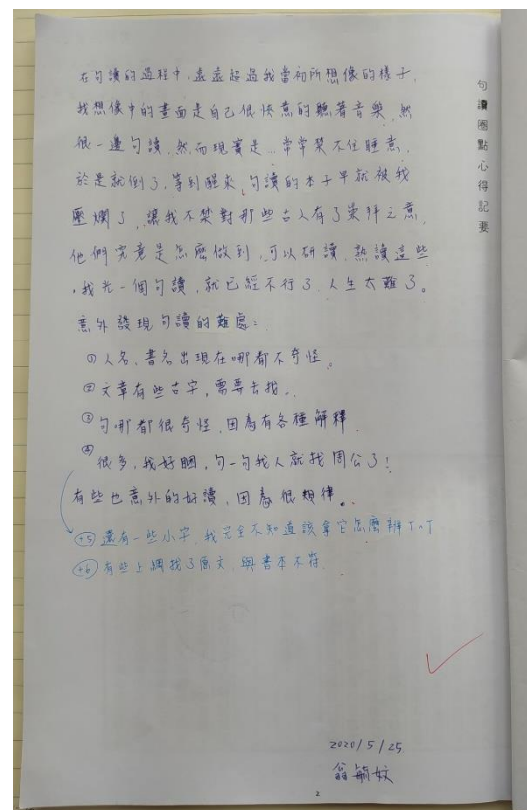 句讀圈點心得記要
在句讀的過程中,遠遠超過我當初所想像的樣子,
我想像中的畫面是自己很愜意的聽著音樂,然
後一邊句讀,然而現實是…常常禁不住睡意,
於是就倒了,等到醒來,句讀的本子早就被我
壓爛了,讓我不禁對那些古人有了崇拜之意,
他們究竟是怎麼做到,可以研讀、熟讀這些
,我光一個句讀,就已經不行了,人生太難了。
意外發現句讀的難處:
①人名、書名出現在哪都不奇怪。
②文章有些古字,需要去找。
③句哪都很奇怪,因為有各種解釋。
④很多,我好睏,句一句我人就找周公了!
有些也意外的好讀,因為很規律。
+5 還有一些小字,我完全不知道該拿它怎麼辦T^T
+6 有些上網找了原文,與書本不符。
2020/5/25
翁毓姣
2